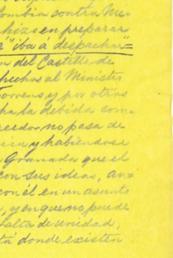 lombia contra Me-
hizo en preparar
" iba á despachar=
n del Castillo de
hechas al Ministro
Torrens y por otros
ha la debida com-
reedor, no pasa de
y habiéndose
Granada que el
con sus ideas,
con él en un asunto
, y en que no puede
falta de unidad,
tá donde existen